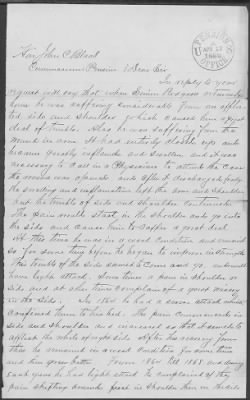 Hon John C Black
Commissioner Pensions Dear Sir
In reply to your
request will say that when Pedgeon returned
home he was suffering considerable from an afflic
ted side and shoulder which caused him a great
deal of trouble. Also he was suffering from the
wound in arm. It had entirely closed up and
became greatly inflamed and swollen and it was
necessary to call in Physician to attend the case
the wound was opened and after it discharged freely
the swelling and inflammation left the arm and shoulder
and the trouble of side and shoulder continued.
The pain would start in the shoulder and go into
the side and cause him to suffer a great deal.
At this time he was in a weak condition and remained
so for some time before he began to
his trouble of the side seemed to come and go, and would
have light attack. Some times a pain in shoulder or
side and at other times complain of a great misery
in the side. In 1865 he had a severe attack which
confined him to his bed. The pain commenced in
side and shoulder and increased so that it seemed to
affect the whole of right side. After his recovery from
this he remained in a weak condition for some time
and then grew better. From 1865 till 1868 and during
each year he had light attack he complained of the
pain shifting around first in shoulder then in the side
PENSION OFFICE
APR 13